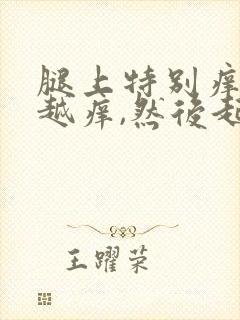 腿上特别痒
越痒,然後起
王躍荣